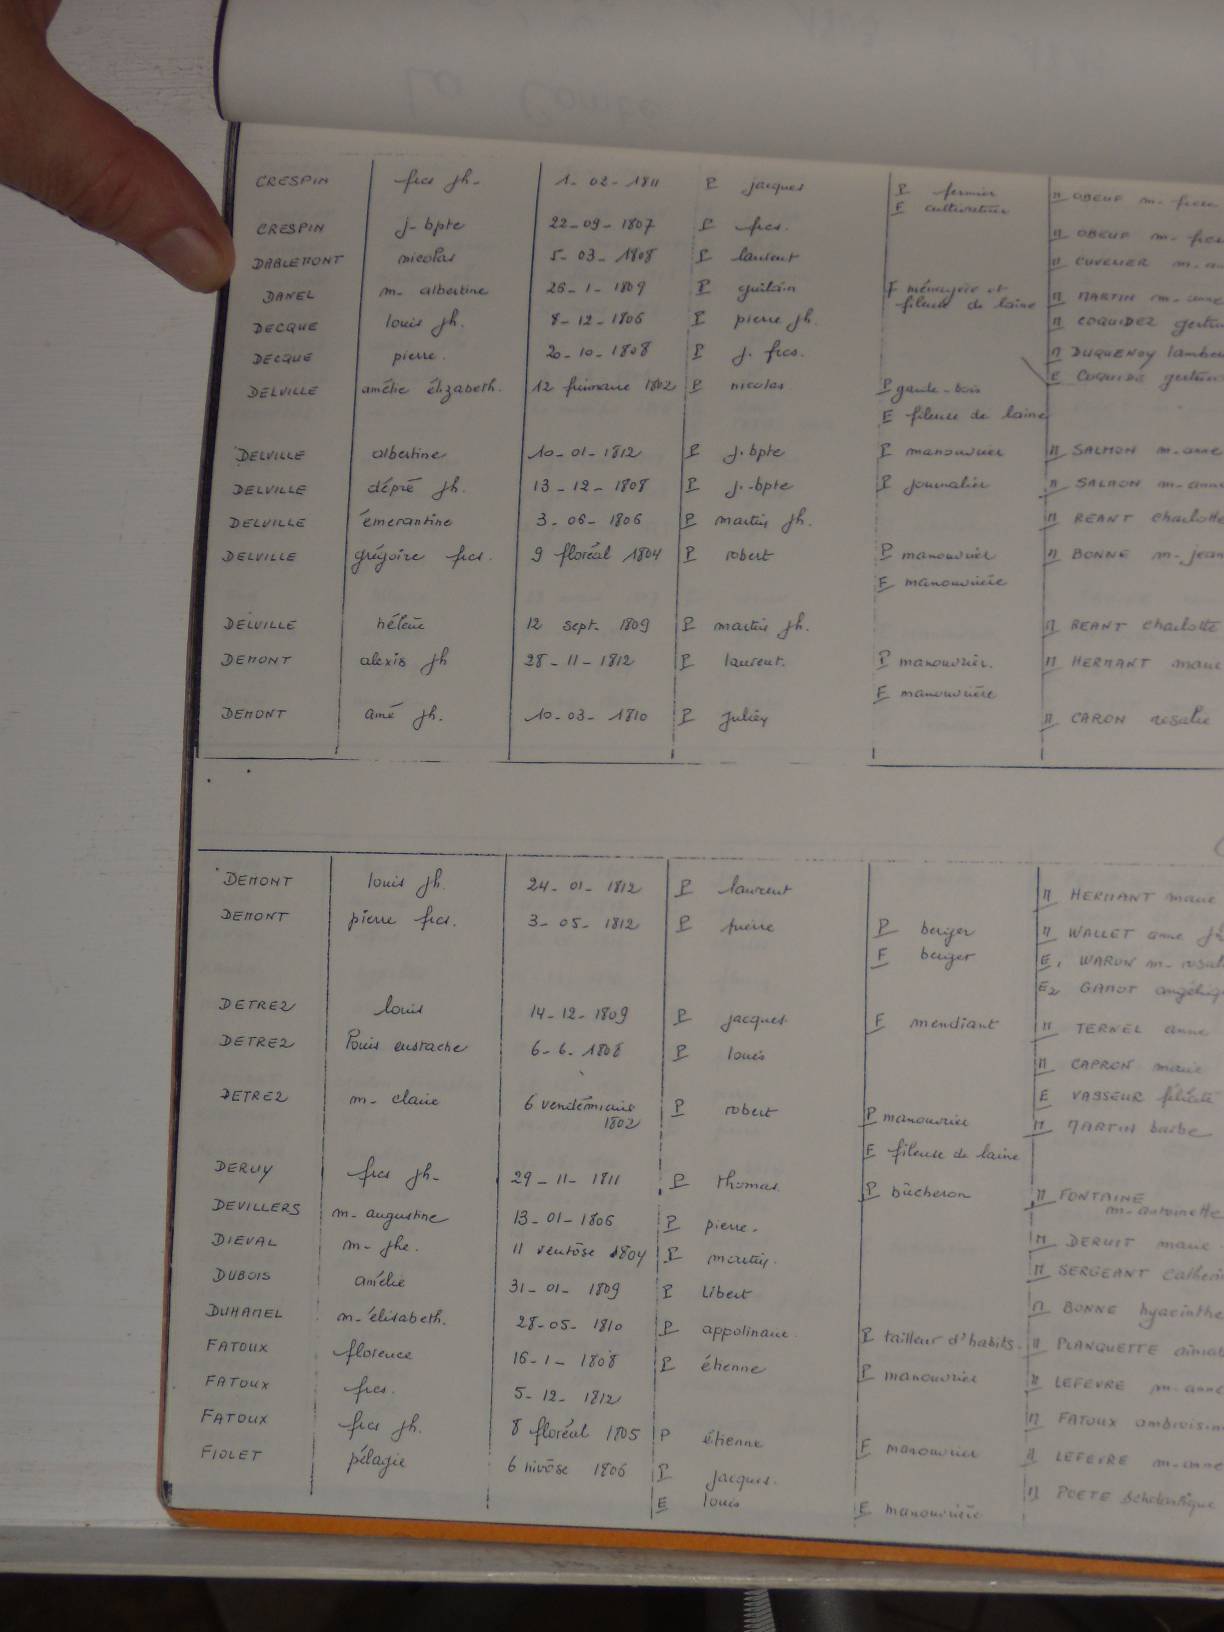 CRESPIN fcs jh. 1- 02 - 1811 P jacques P fermier M OBEUF m-
E cultivateur
CRESPIN j-bpte 22-09-1807 P fcs. M OBEUF m-
DABLEMONT nicolas 5-03-1808 P laurent M CUVELIER m-
DANEL m- albertine 26-1-1809 P guilain F ménagère et M MARTIN m-anne
fileuse de laine
DECQUE louis jh. 8-12-1806 P pierre jh. M COQUIDEZ
DECQUE pierre. 20-10-1808 P j. fcs. M DUQUENOY
E COQUIDÉ
DELVILLE amélie élizabeth. 12 frimaire 1802 P nicolas P garde-bois
E fileuse de laine
DELVILLE albertine 10-01-1812 P j.bpte P manouvrier M SALMON m-anne
DELVILLE dépré jh. 13-12-1808 P j.-bpte P journalier M SALMON m-anne
DELVILLE émerantine 3-06-1806 P martin jh. M REANT charlotte
DELVILLE grégoire fcs. 9 floréal 1804 P robert P manouvrier M BONNE m-jean
E manouvrière
DELVILLE hélène 12 sept. 1809 P martin jh. M REANT charlotte
DEMONT alexis jh 28-11-1812 P laurent. P manouvrier. M HERMANT marie
E manouvrière
DEMONT amé jh. 10-03-1810 P julien M CARON rosalie
DEMONT louis jh. 24-01-1812 P laurent M HERMANT marie
DEMONT pierre fcs. 3-05-1812 P pierre P berger M WALLET anne
F berger E, WARON m-
E2 GAMOT
DETREZ louis 14-12-1809 P jacques F mendiant M TERNEL anne
DETREZ louis eustache 6-6-1808 P louis M CAPRON marie
E VASSEUR félicité
DETREZ m- claire 6 vendémiaire P robert P manouvrier M MARTIN barbe
1802
E fileuse de laine
DERUY fcs jh- 29-11-1811 P thomas P bûcheron M FONTAINE
m-antoinette
DEVILLERS m-augustine 13-01-1806 P pierre. M DERUIT marie
DIEVAL m-jhe. 11 ventôse 1804 P martin. M SERGEANT
DUBOIS amélie 31-01-1809 P libert M BONNE hyacinthe
DUHAMEL m-élisabeth. 28-05-1810 P appolinaire. P tailleur d'habits. M PLANQUETTE
FATOUX florence 16-1-1808 P étienne P manouvrier M LEFEVRE m-anne
FATOUX fcs. 5-12-1812 M FATOUX
FATOUX fcs jh. 8 floréal 1805 P étienne F manouvrier M LEFEVRE m-anne
FIOLET pélagie 6 nivôse 1806 P jacques. M POETE scholastique
E louis E manouvrière